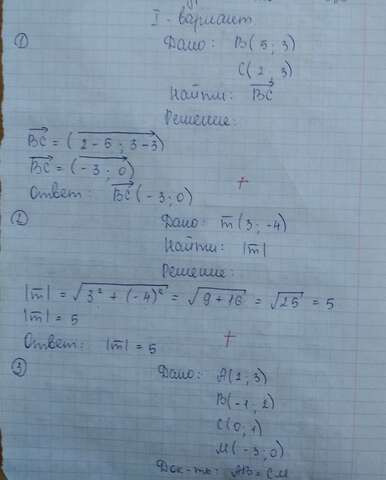 I - вариант
① Дано: B(5; 3)
C(2; 3)
Найти: BC
Решение:
BC = (2-5; 3-3)
BC = (-3; 0)
Ответ: BC(-3; 0)
+
② Дано: m(3; -4)
Найти: |m|
Решение:
|m| = √3² + (-4)² = √9 + 16 = √25 = 5
|m| = 5
Ответ: |m| = 5
+
③ Дано: A(2; 3)
B(-1; 2)
C(0; 1)
M(-3; 0)
Док-ть: AB = CM